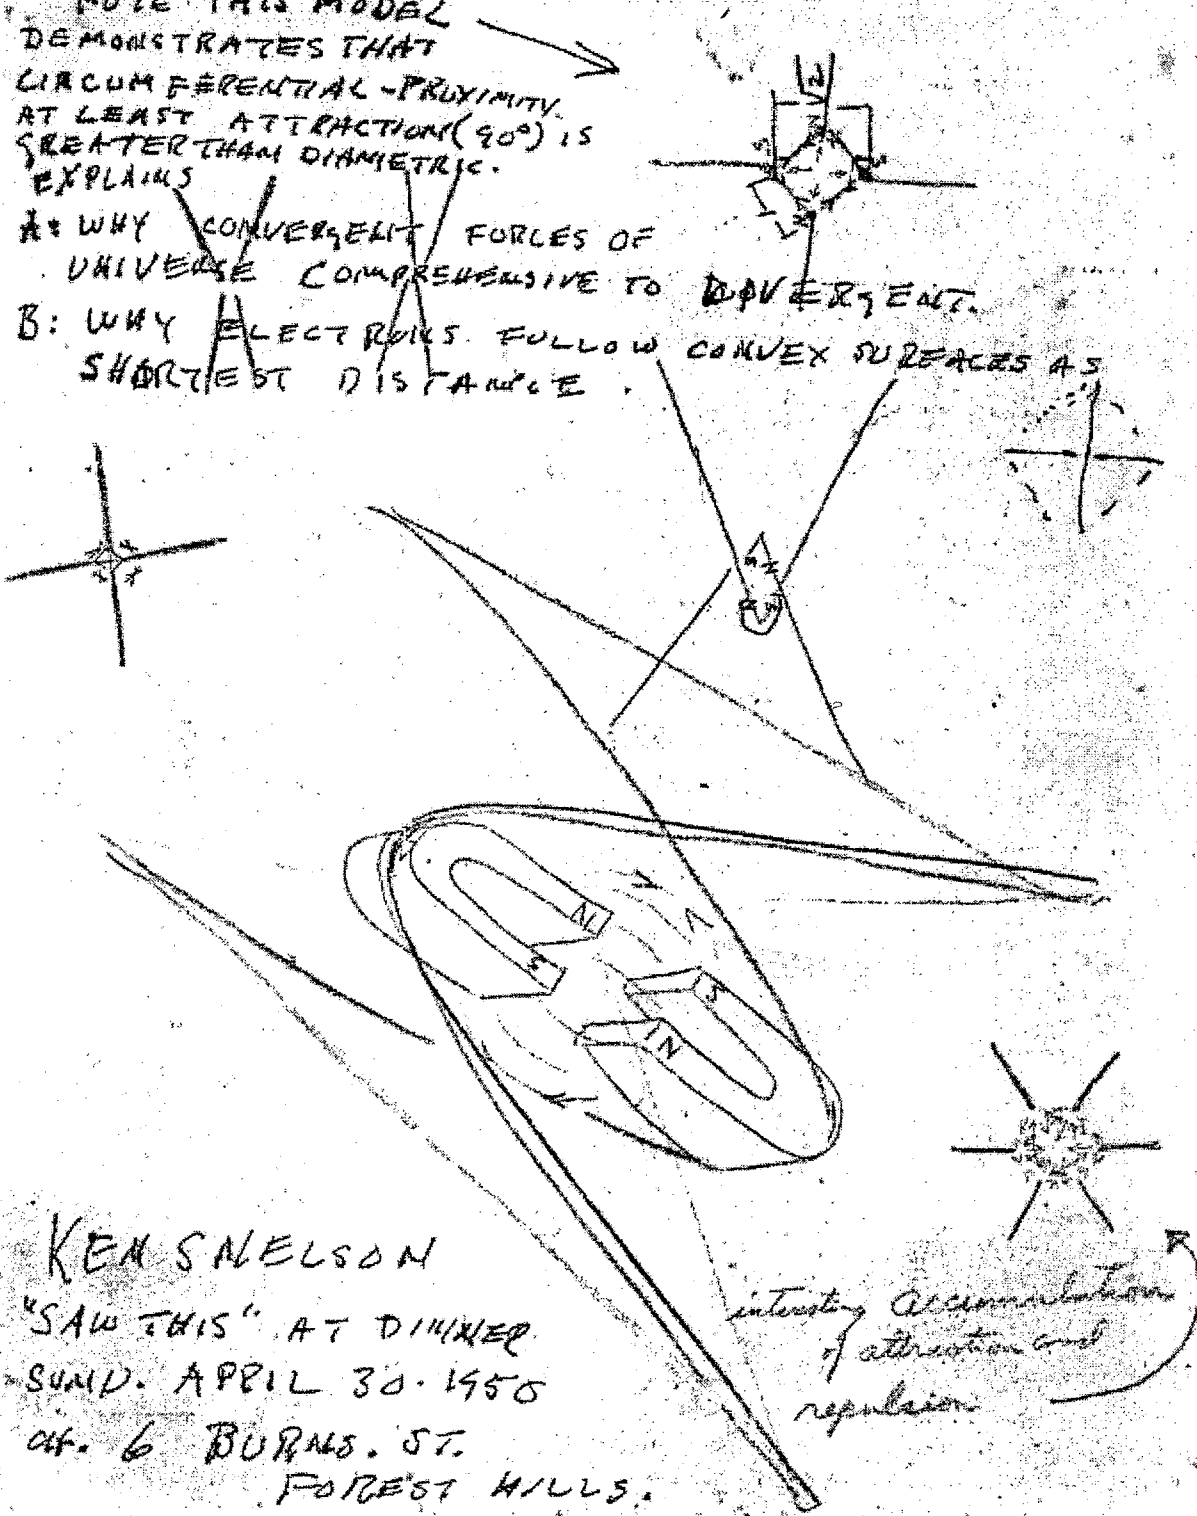 NOTE THIS MODEL
DEMONSTRATES THAT
CIRCUMFERENTIAL-PROXIMITY
AT LEAST ATTRACTION (90°) IS
GREATER THAN DIAMETRIC.
EXPLAINS
A: WHY CONVERGENT FORCES OF
UNIVERSE COMPREHENSIVE TO DIVERGENT.
B: WHY ELECTRONS FOLLOW CONVEX SURFACES AS
SHORTEST DISTANCE.
N
S N
N S
N
S
S
N
KEN SNELSON
"SAW THIS" AT DINNER
SUND. APRIL 30. 1950
at. 6 BURNS. ST.
FOREST HILLS.
interesting accumulation
of attraction and
repulsion